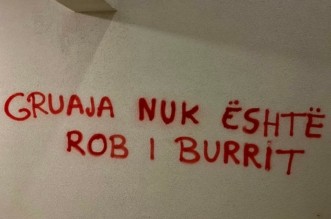 GRUAJA NUK ËSHTË
ROB I BURRIT